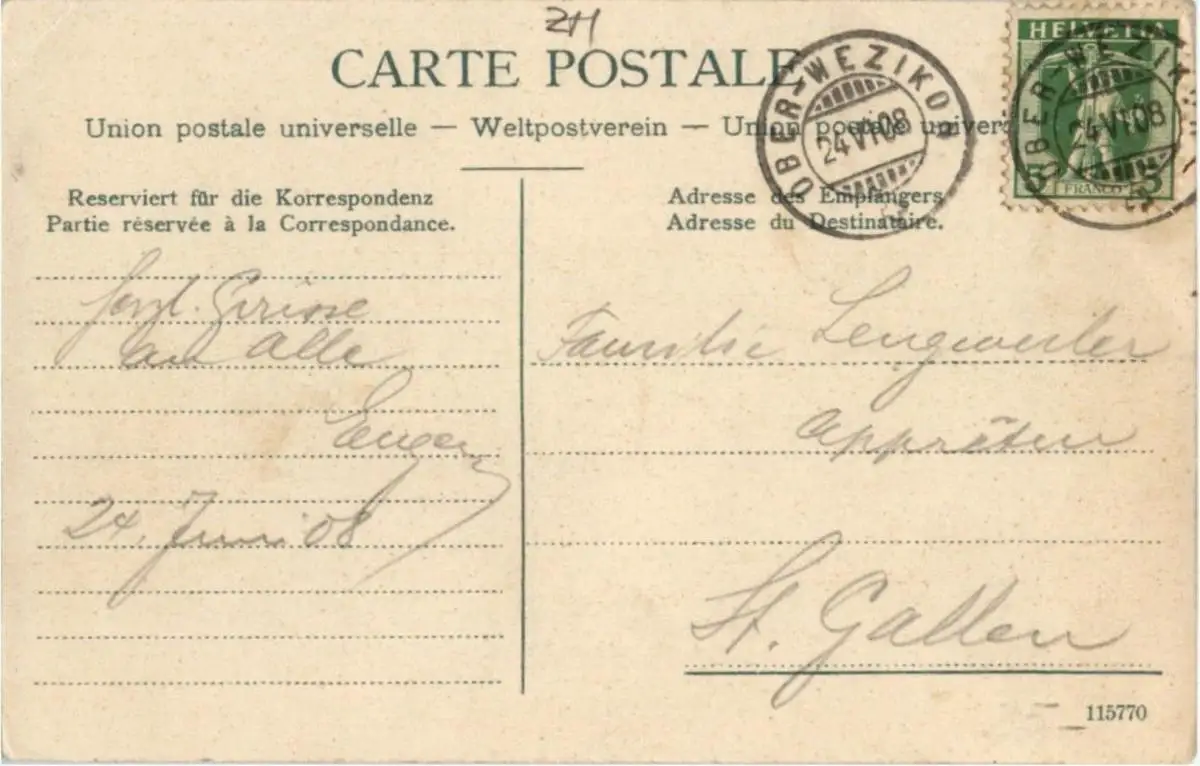 ZH
CARTE POSTALE
Union postale universelle — Weltpostverein — Union postale univers
Reserviert für die Korrespondenz
Partie réservée à la Correspondance.
Adresse des Empfängers
Adresse du Destinataire.
OBER-WEZIKON
24.VI.08
HELVETIA
FRANCO
5
OBER-WEZIKON
24.VI.08
Herzl. Grüsse
an alle
Eugen
24. Juni 08
Familie Lengweiler
St. Gallen
115770